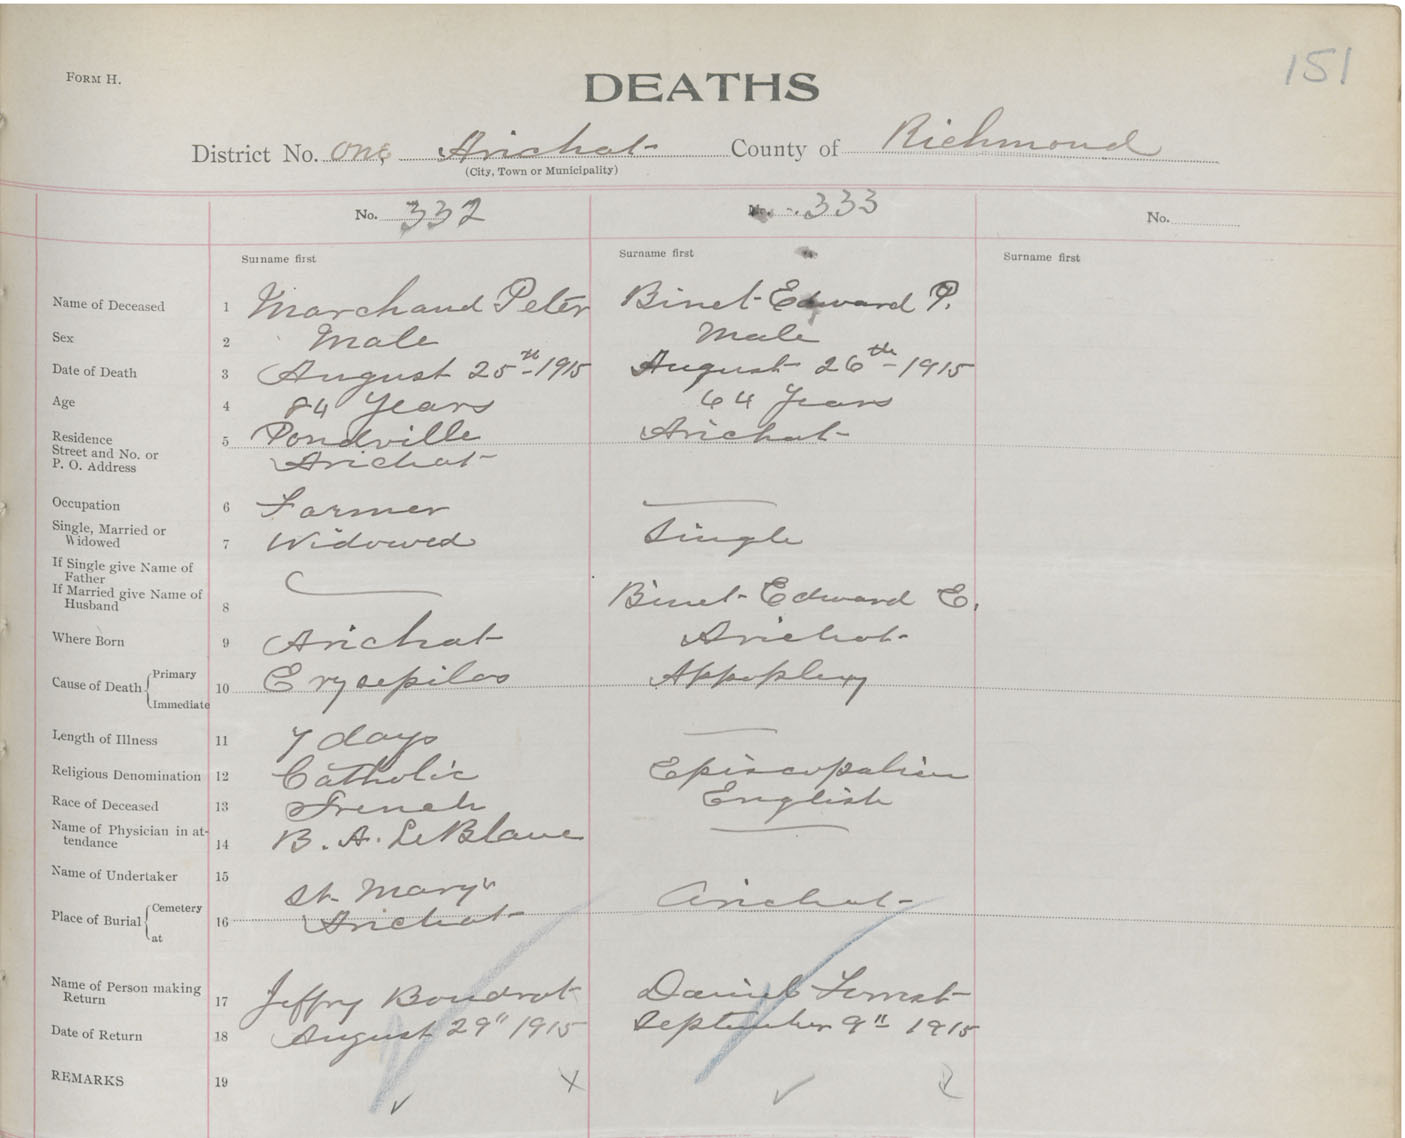 151
FORM H.
DEATHS
District No. One Arichat County of Richmond
(City, Town or Municipality)
No. 332 No. 333 No.
Surname first Surname first Surname first
Name of Deceased 1 Marchand Peter Binet Edward P.
Sex 2 Male Male
Date of Death 3 August 25th 1915 August 26th 1915
Age 4 84 Years 64 Years
Residence 5 Pondville Arichat
Street and No. or
P. O. Address Arichat
Occupation 6 Farmer
Single, Married or
Widowed 7 Widowed Single
If Single give Name of
Father
If Married give Name of
Husband 8 Binet Edward E.
Where Born 9 Arichat Arichat
Cause of Death Primary
Immediate 10 Erysepilas Appoplexy
Length of Illness 11 7 days
Religious Denomination 12 Catholic Episcopalian
Race of Deceased 13 French English
Name of Physician in at-
tendance 14 B. A. LeBlanc
Name of Undertaker 15
Place of Burial Cemetery St. Mary's Arichat
at 16 Arichat
Name of Person making
Return 17 Jeffry Boudrot Daniel Forrest
Date of Return 18 August 29" 1915 September 9" 1915
REMARKS 19